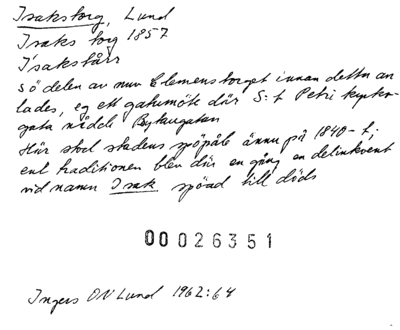 Isakstorg, Lund
Isaks torg 1857
Isakstårr
sö delen av nuv Clemenstorget innan detta an
lades, eg ett gatumöte där S:t Petri kyrko-
gata nådde Bytaregatan
Här stod stadens spöpåle ännu på 1840-t;
enl traditionen blev där en gång en delinkvent
vid namn Isak spöad till döds
00026351
Ingers ON Lund 1962:64